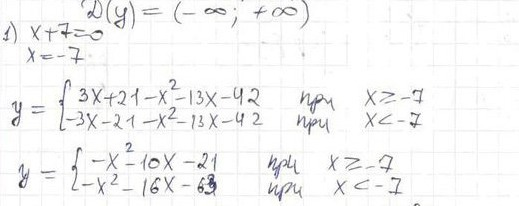 D(y) = (-∞; +∞)
1) x+7=0
x=-7
y = { 3x+21-x²-13x-42 при x≥-7
-3x-21-x²-13x-42 при x<-7
y = { -x²-10x-21 при x≥-7
-x²-16x-63 при x<-7